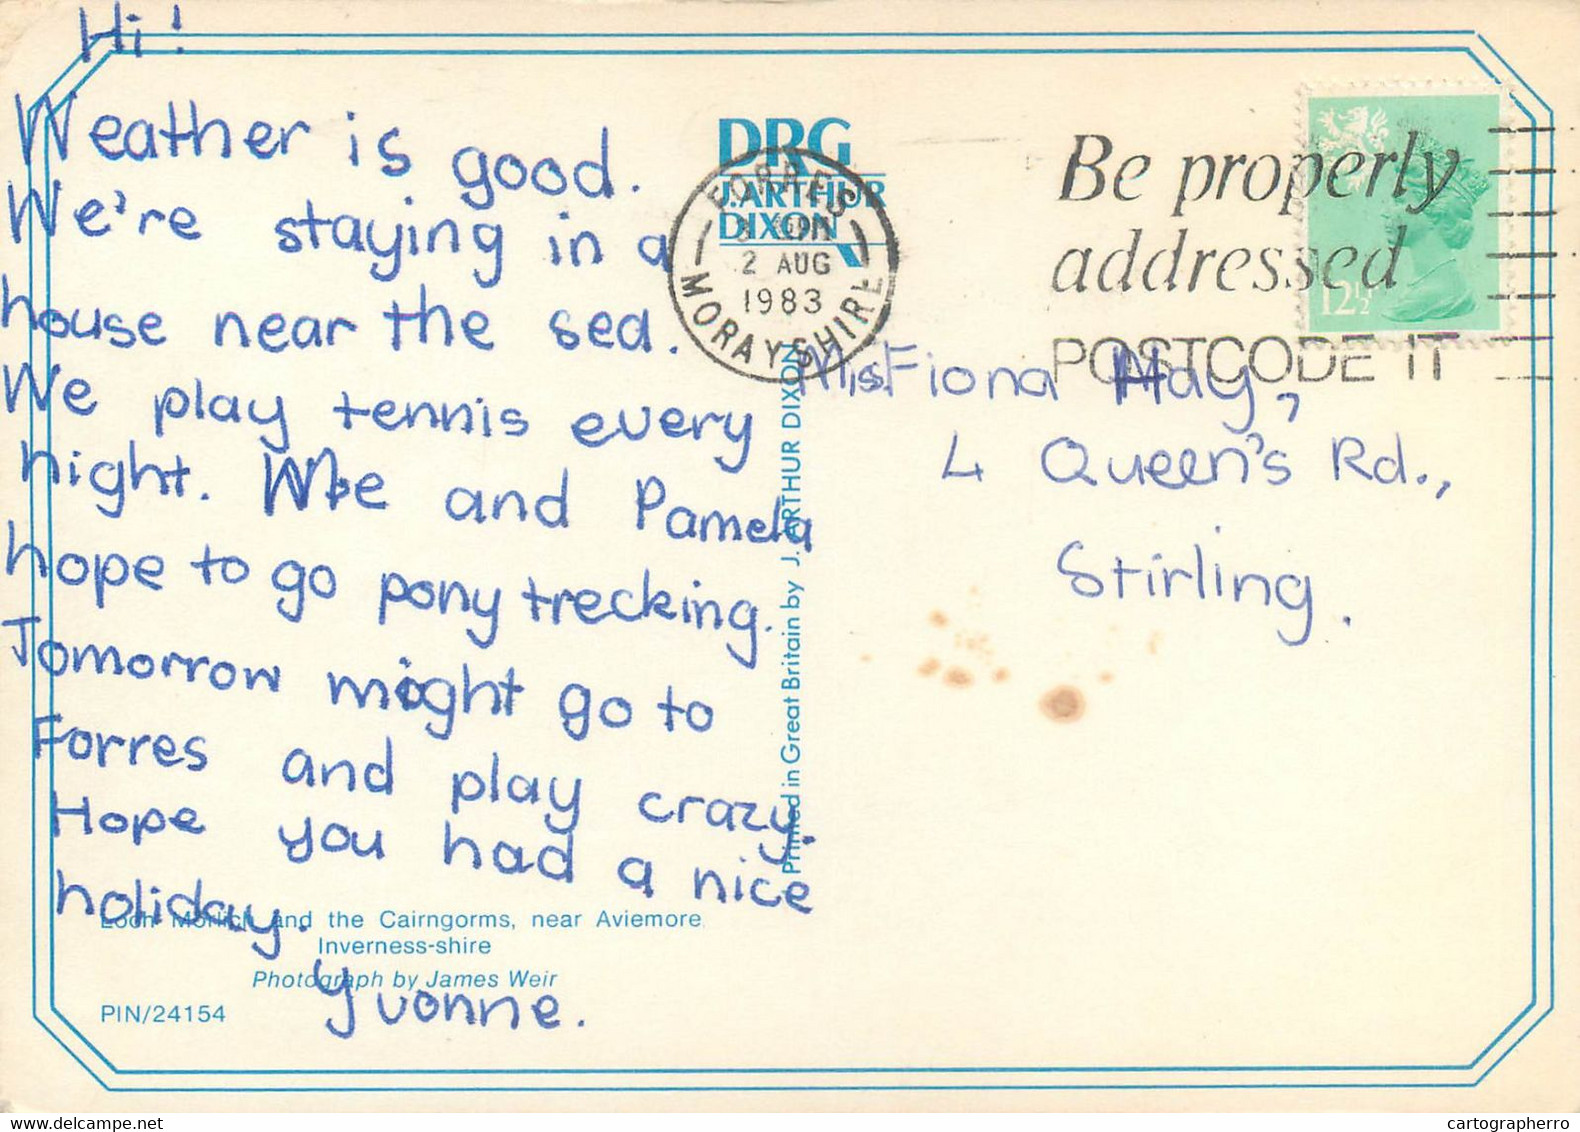 Hi!
Weather is good.
We're staying in a
house near the sea.
We play tennis every
night. Me and Pamela
hope to go pony trecking.
Tomorrow might go to
Forres and play crazy.
Hope you had a nice
holiday.
Yvonne.
Loch Morlich and the Cairngorms, near Aviemore
Inverness-shire
Photograph by James Weir
PIN/24154
DRG
J.ARTHUR
DIXON
Printed in Great Britain by J. ARTHUR DIXON
FORRES
2 AUG
1983
MORAYSHIRE
Be properly
addressed
POSTCODE IT
12½
Miss Fiona Hay,
4 Queen's Rd.,
Stirling.
cartographerro